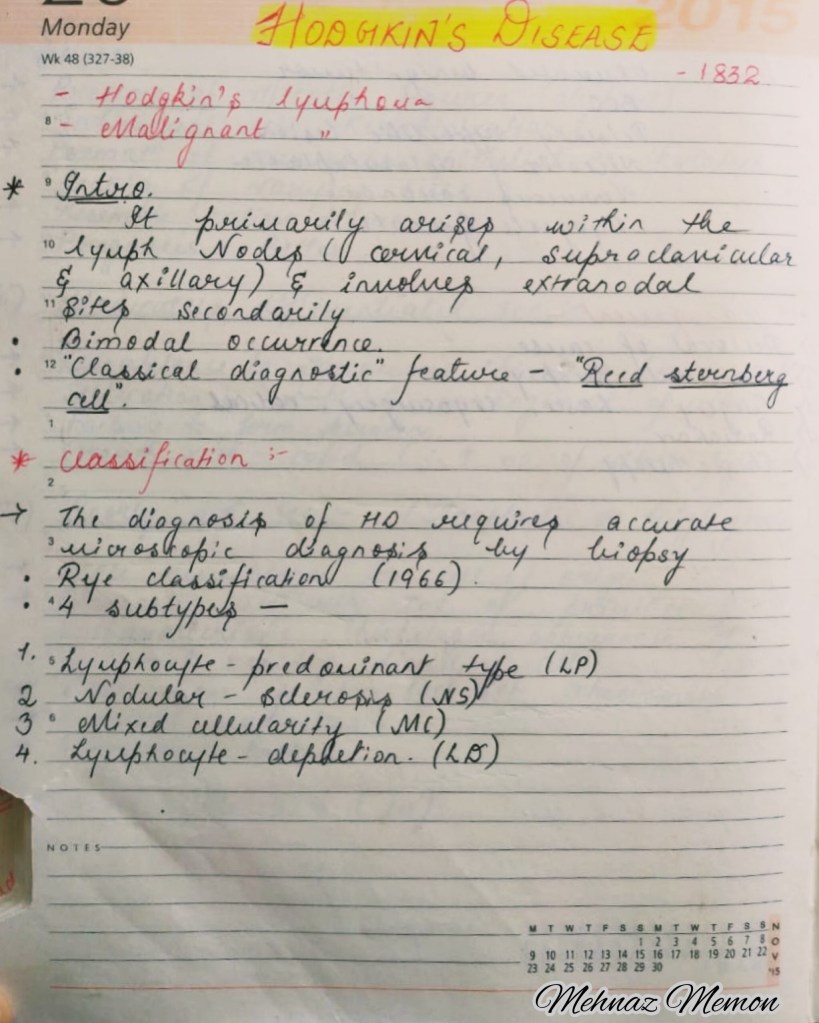 Monday
HODGKIN'S DISEASE
2015
Wk 48 (327-38)
- 1832
- Hodgkin's lymphoma
8 - Malignant "
* 9 Intro.
It primarily arises within the
10 lymph Nodes (cervical, supraclavicular
& axillary) & involves extranodal
11 sites secondarily
• Bimodal occurrence.
• 12 "Classical diagnostic" feature - "Reed sternberg
cell".
1
* Classification :-
2
→ The diagnosis of HD requires accurate
3 microscopic diagnosis by biopsy
• Rye classification (1966).
• 4 4 subtypes —
1. 5 Lymphocyte - predominant type (LP)
2 Nodular - sclerosis (NS)
3 6 Mixed cellularity (MC)
4. Lymphocyte - depletion. (LD)
NOTES
M T W T F S S M T W T F S S
1 2 3 4 5 6 7 8
9 10 11 12 13 14 15 16 17 18 19 20 21 22
23 24 25 26 27 28 29 30
NOV '15
Mehnaz Memon